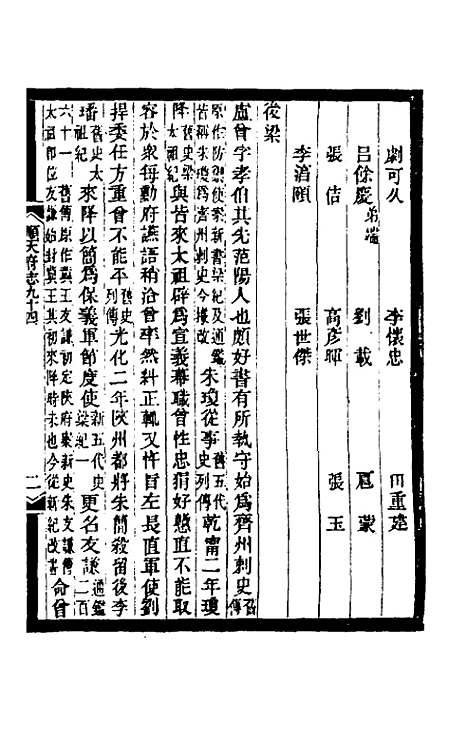 劇可久 李懷忠 田重建
呂餘慶弟端 劉載 扈蒙
張佶 高彥暉 張玉
李道頤 張世傑
後梁
盧曾字孝伯其先范陽人也頗好書有所執守始爲齊州刺史
舊傳原作防禦使案新書梁紀及通鑑皆稱朱瓊爲齊州刺史今據改朱瓊從事舊五代史列傳乾甯二年瓊
降舊史梁太祖紀曾與皆來太祖辟爲宣義幕職曾性忠狷好戇直不能取
容於衆每勳府讌語稍洽曾率然糾正輒又忤旨左長直軍使劉
捍委任方重曾不能平舊史列傳光化二年陝州都將朱簡殺留後李
璠舊史太祖紀來降以簡爲保義軍節度使新五代史梁紀一更名友謙通鑑二百
六十一舊傳原作冀王友謙初定陝府案新史朱友謙傳太祖即位友謙始封冀王其初來降時未也今從新紀改書命曾
順天府志九十四
二